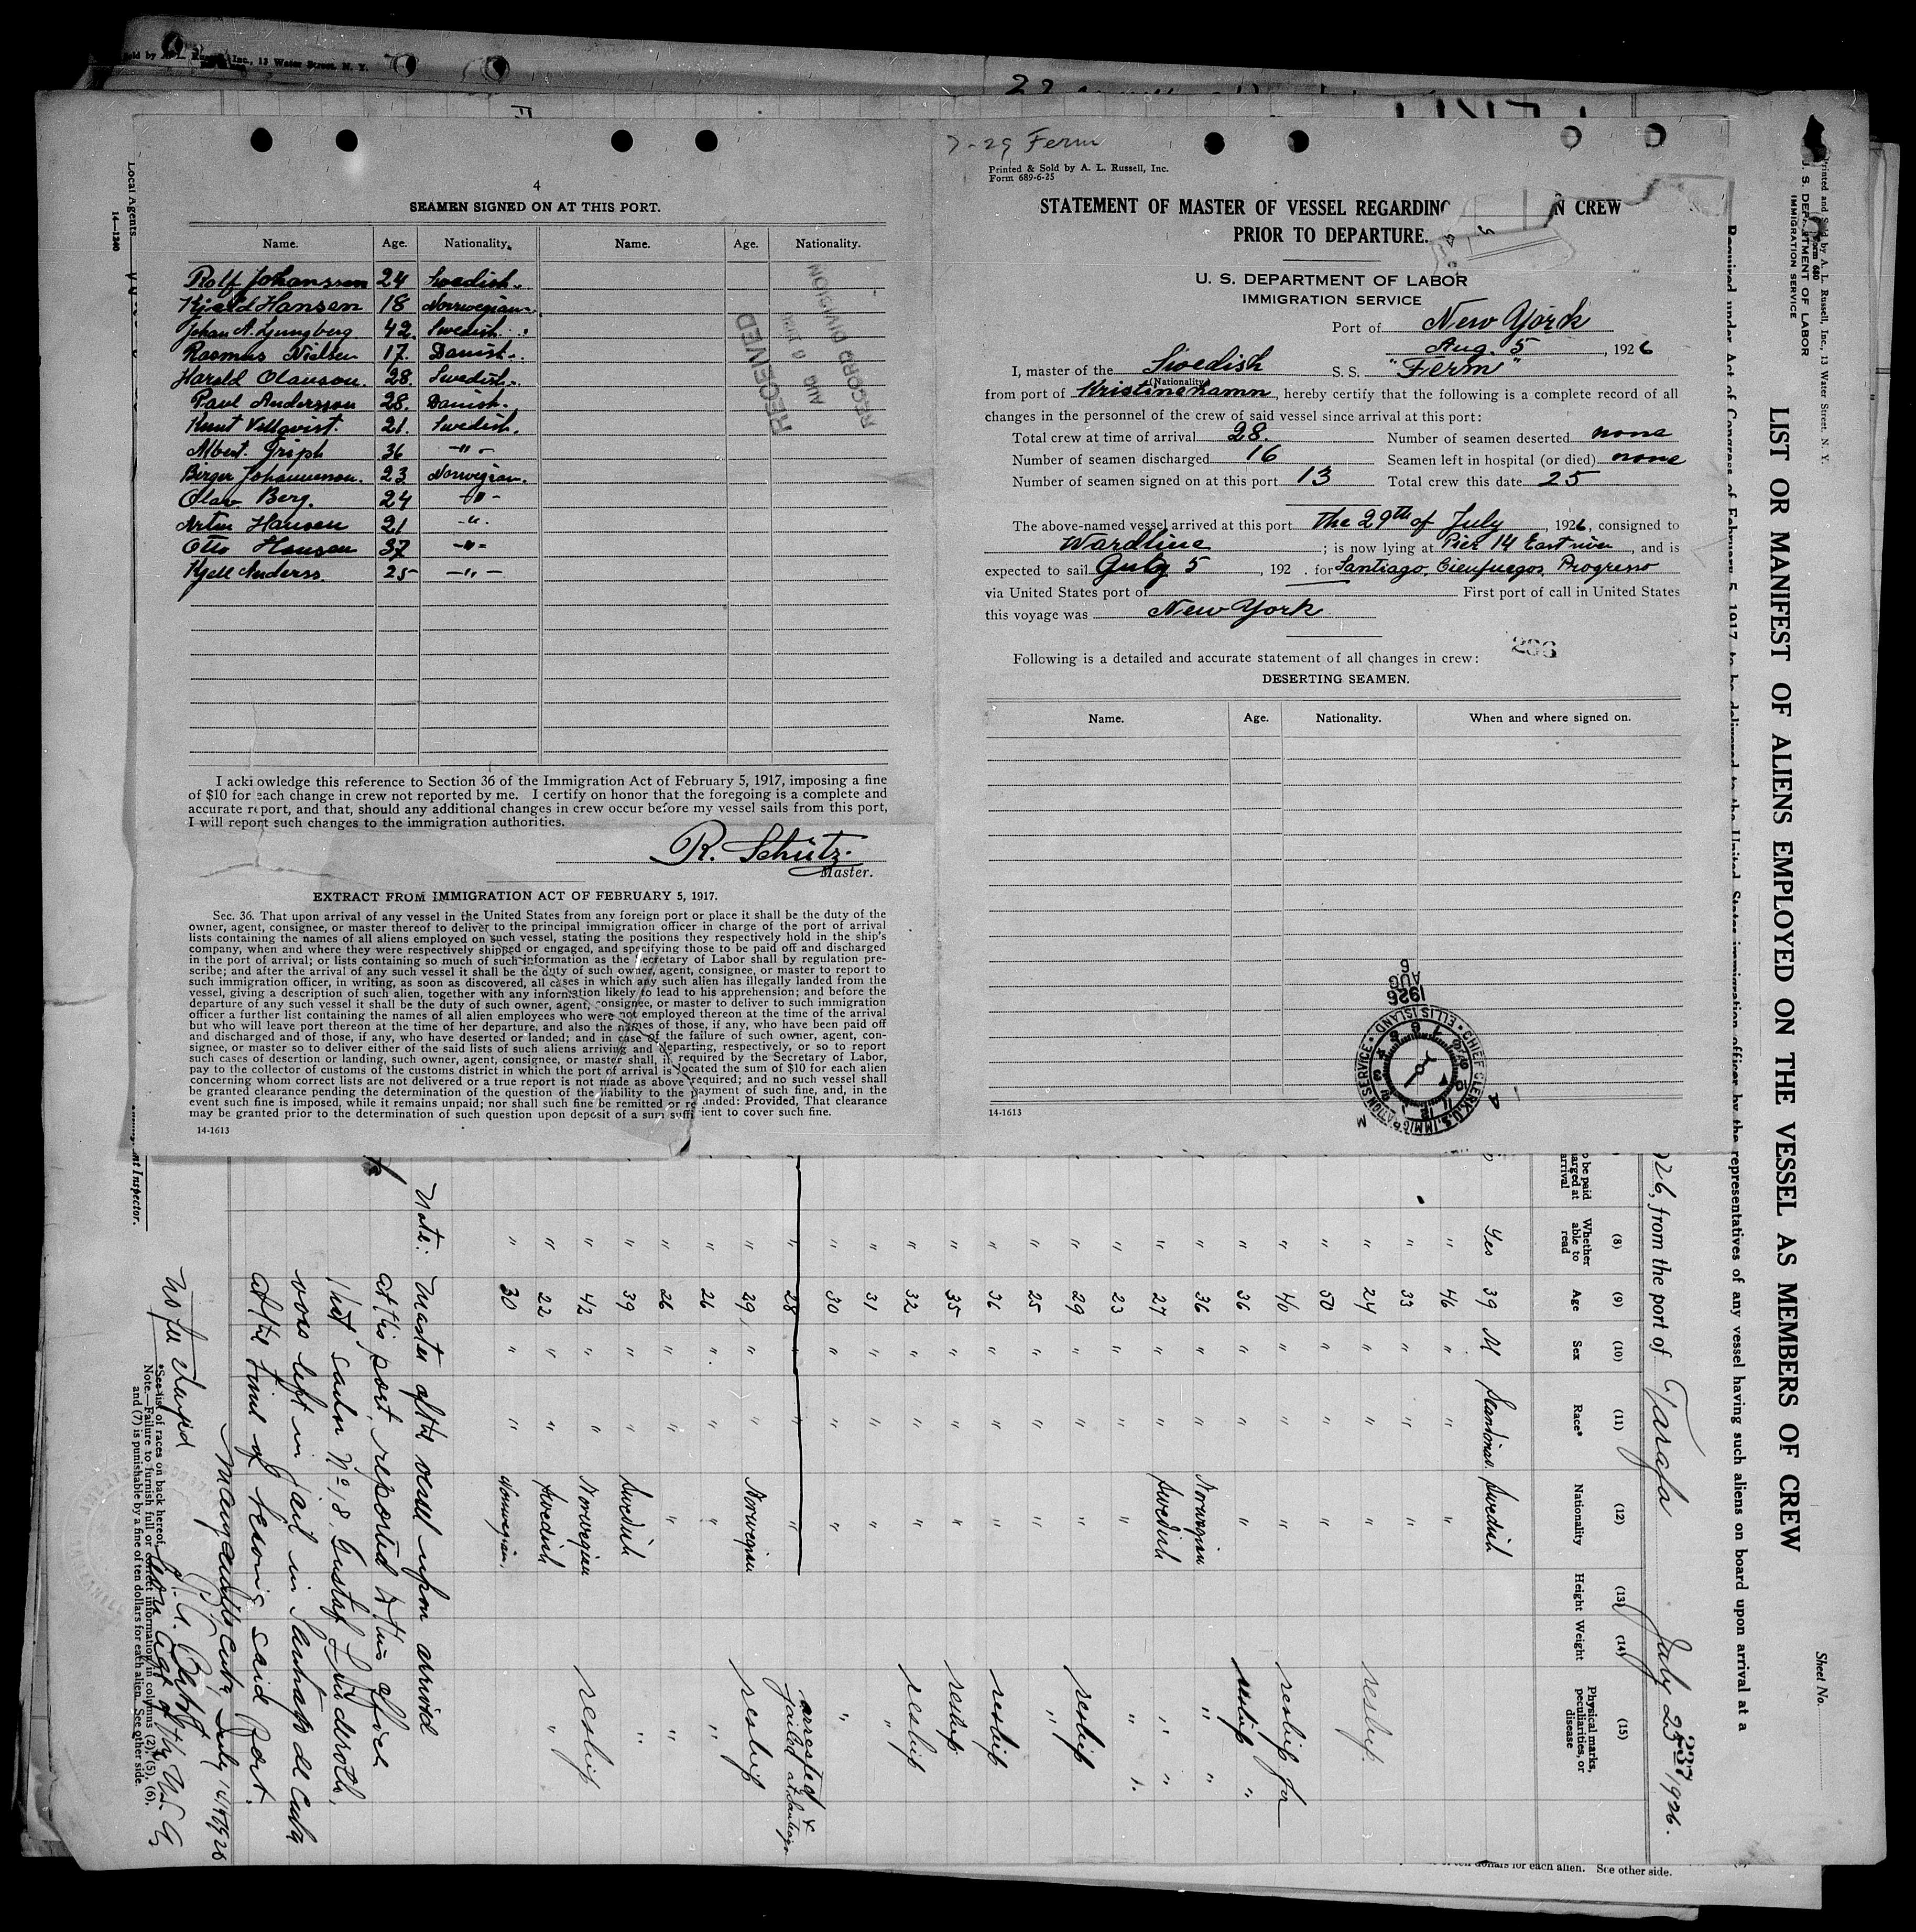 Sold by A. L. Russell, Inc., 13 Water Street, N. Y.
4
SEAMEN SIGNED ON AT THIS PORT.
Name. Age. Nationality. Name. Age. Nationality.
Rolf Johansson 24 Swedish.
Kjeld Hansen 18 Norwegian.
Johan A. Ljungberg. 42. Swedish.
Rasmus Nielsen 17. Danish.
Harald Olauson. 28. Swedish.
Paul Andersson 28. Danish.
Knut Vellqvist. 21. Swedish.
Albert. Griph 36 -"-
Birger Johannenson. 23 Norwegian.
Olav Berg. 24 -"-
Artur Hansen 21 -"-
Otto Hansen 37 -"-
Kjell Anderss. 25 -"-
RECEIVED
AUG 6 1926
RECORD DIVISION
I acknowledge this reference to Section 36 of the Immigration Act of February 5, 1917, imposing a fine
of $10 for each change in crew not reported by me. I certify on honor that the foregoing is a complete and
accurate report, and that, should any additional changes in crew occur before my vessel sails from this port,
I will report such changes to the immigration authorities.
R. Schütz.
Master.
EXTRACT FROM IMMIGRATION ACT OF FEBRUARY 5, 1917.
Sec. 36. That upon arrival of any vessel in the United States from any foreign port or place it shall be the duty of the
owner, agent, consignee, or master thereof to deliver to the principal immigration officer in charge of the port of arrival
lists containing the names of all aliens employed on such vessel, stating the positions they respectively hold in the ship's
company, when and where they were respectively shipped or engaged, and specifying those to be paid off and discharged
in the port of arrival; or lists containing so much of such information as the Secretary of Labor shall by regulation pre-
scribe; and after the arrival of any such vessel it shall be the duty of such owner, agent, consignee, or master to report to
such immigration officer, in writing, as soon as discovered, all cases in which any such alien has illegally landed from the
vessel, giving a description of such alien, together with any information likely to lead to his apprehension; and before the
departure of any such vessel it shall be the duty of such owner, agent, consignee, or master to deliver to such immigration
officer a further list containing the names of all alien employees who were not employed thereon at the time of the arrival
but who will leave port thereon at the time of her departure, and also the names of those, if any, who have been paid off
and discharged and of those, if any, who have deserted or landed; and in case of the failure of such owner, agent, con-
signee, or master so to deliver either of the said lists of such aliens arriving and departing, respectively, or so to report
such cases of desertion or landing, such owner, agent, consignee, or master shall, if required by the Secretary of Labor,
pay to the collector of customs of the customs district in which the port of arrival is located the sum of $10 for each alien
concerning whom correct lists are not delivered or a true report is not made as above required; and no such vessel shall
be granted clearance pending the determination of the question of the liability to the payment of such fine, and, in the
event such fine is imposed, while it remains unpaid; nor shall such fine be remitted or refunded: Provided, That clearance
may be granted prior to the determination of such question upon deposit of a sum sufficient to cover such fine.
14-1613
7-29 Ferm
Printed & Sold by A. L. Russell, Inc.
Form 689-6-25
STATEMENT OF MASTER OF VESSEL REGARDING N CREW
PRIOR TO DEPARTURE.
U. S. DEPARTMENT OF LABOR
IMMIGRATION SERVICE
Port of New York
Aug. 5, 1926
I, master of the Swedish S. S. "Ferm"
(Nationality)
from port of Kristinehamn, hereby certify that the following is a complete record of all
changes in the personnel of the crew of said vessel since arrival at this port:
Total crew at time of arrival 28. Number of seamen deserted none
Number of seamen discharged 16 Seamen left in hospital (or died) none
Number of seamen signed on at this port 13 Total crew this date 25
The above-named vessel arrived at this port the 29th of July, 1926, consigned to
Wardline; is now lying at Pier 14 East river, and is
expected to sail July 5, 192 . for Santiago, Cienfuegos, Progreso
via United States port of First port of call in United States
this voyage was New York
266
Following is a detailed and accurate statement of all changes in crew:
DESERTING SEAMEN.
Name. Age. Nationality. When and where signed on.
1926 AUG 6
CHIEF CLERK, U.S. IMMIGRATION SERVICE • ELLIS ISLAND
14-1613
Local Agents
14-1240
Printed and Sold by A. L. Russell, Inc., 13 Water Street, N. Y.
Form 680
U. S. DEPARTMENT OF LABOR
IMMIGRATION SERVICE
Sheet No.
LIST OR MANIFEST OF ALIENS EMPLOYED ON THE VESSEL AS MEMBERS OF CREW
Required under Act of Congress of February 5, 1917, to be delivered to the United States immigration officer by the representatives of any vessel having such aliens on board upon arrival at a
926, from the port of Tarafa July 23 1926.
237
(8) (9) (10) (11) (12) (13) (14) (15)
Whether able to read Age Sex Race* Nationality Height Weight Physical marks, peculiarities, or disease
Yes 39 M Scandinav. Swedish
" 46 " " "
" 33 " " "
" 24 " " " reship.
" 50 " " "
" 40 " " " reship for
" 36 " " " reship "
" 36 " " Norwegian " "
" 27 " " Swedish " "
" 23 " " " " "
" 29 " " " reship
" 25 " " " "
" 36 " " " reship
" 35 " " " reship
" 32 " " " reship
" 31 " " " "
" 30 " " " "
" 28 " " " arrested & jailed at Santiago
" 29 " " Norwegian reship
" 26 " " " "
" 26 " " " "
" 39 " " Swedish "
" 42 " " Norwegian reship
" 22 " " Swedish "
" 30 " " Norwegian
Note: Master of the vessel upon arrival
at this port, reported to this office
that said No 18, Gustaf Lind droth,
was left in jail in Santiago de Cuba
at the time of leaving said Port.
Manzanillo Cuba, July 14 1926
No fee
*See list of races on back hereof.
Note.—Failure to furnish full or correct information in columns (2), (5), (6),
and (7) is punishable by a fine of ten dollars for each alien. See other side.
Inspector.
ten dollars for each alien. See other side.